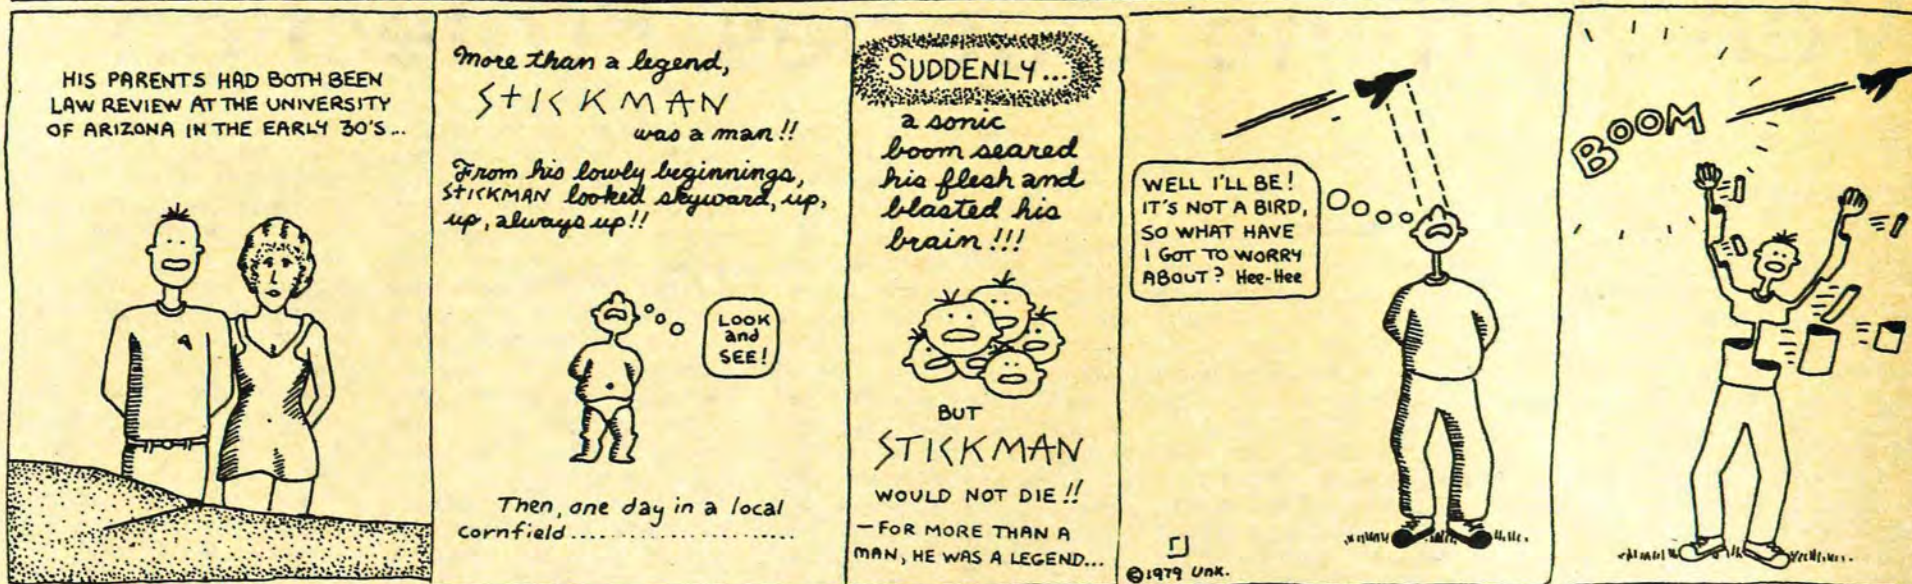 HIS PARENTS HAD BOTH BEEN
LAW REVIEW AT THE UNIVERSITY
OF ARIZONA IN THE EARLY 30'S...
A
More than a legend,
STICKMAN
was a man!!
From his lowly beginnings,
STICKMAN looked skyward, up,
up, always up!!
LOOK
and
SEE!
Then, one day in a local
cornfield......................
SUDDENLY...
a sonic
boom seared
his flesh and
blasted his
brain!!!
BUT
STICKMAN
WOULD NOT DIE!!
—FOR MORE THAN A
MAN, HE WAS A LEGEND...
WELL I'LL BE!
IT'S NOT A BIRD,
SO WHAT HAVE
I GOT TO WORRY
ABOUT? Hee-Hee
©1979 Unk.
BOOM